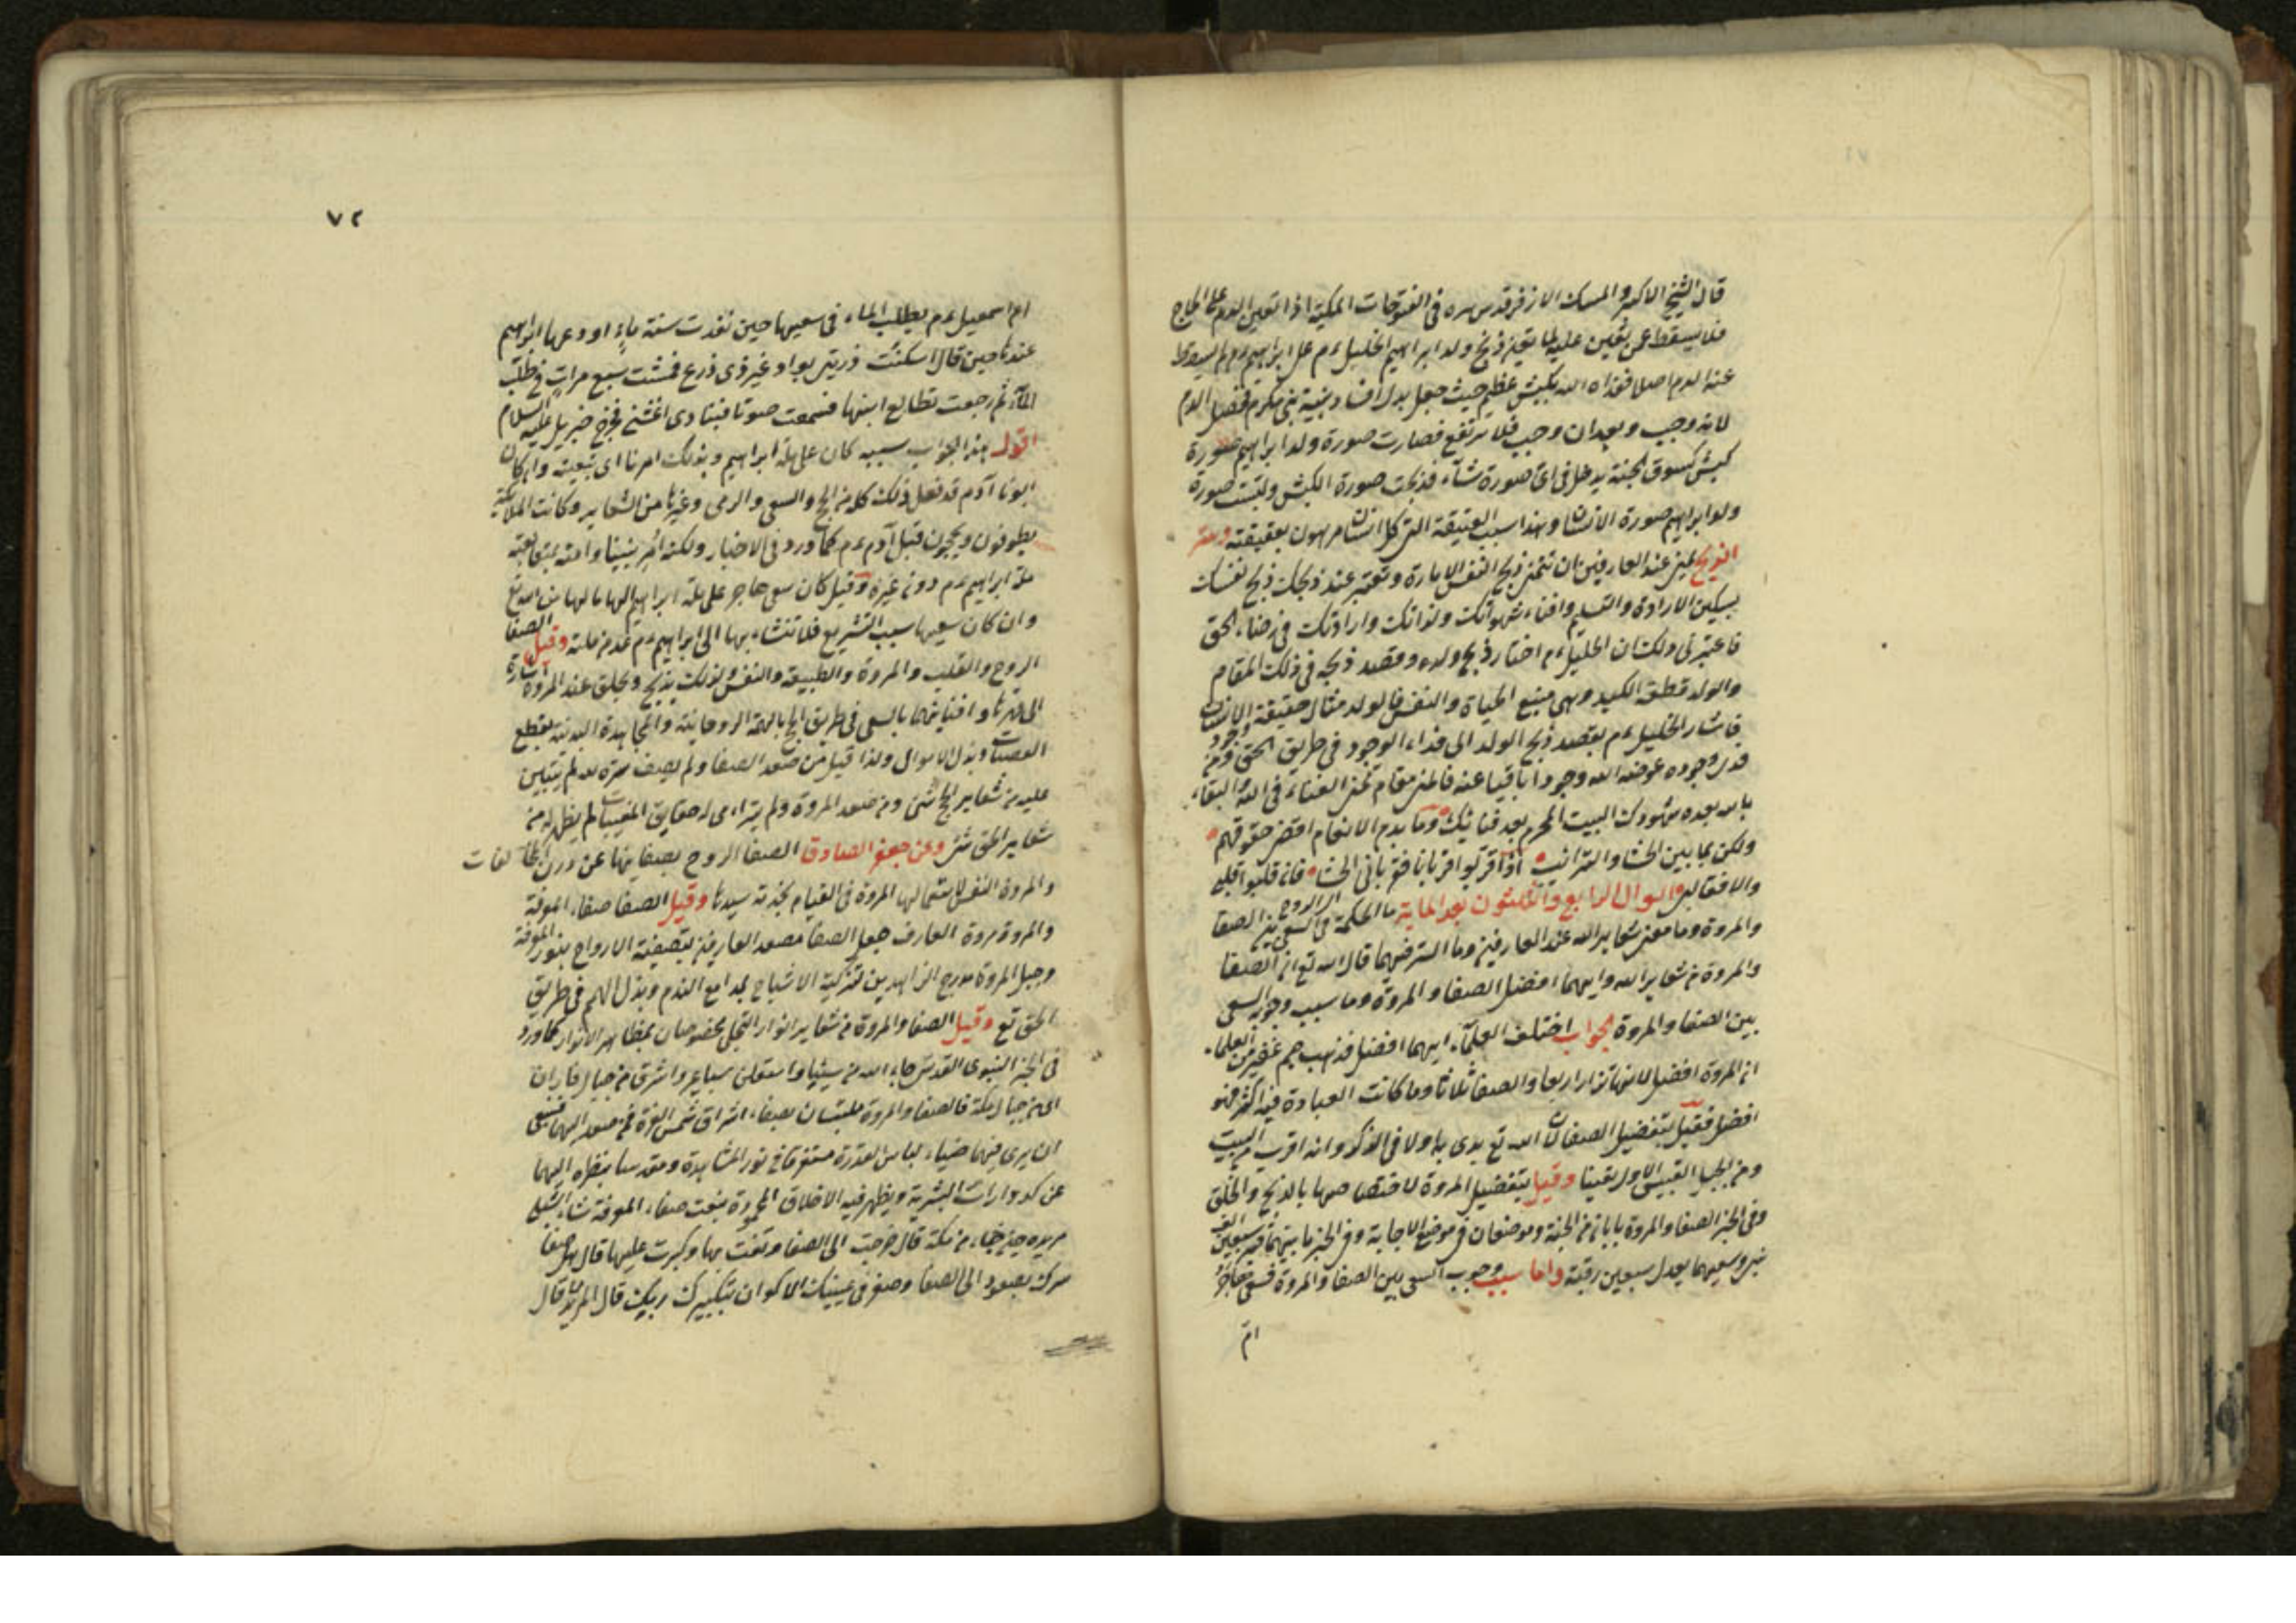 قال الشيخ الاكبر والمسك الازفر قدس سره فى الفتوحات المكية اذا تعين الدم على الحاج
فلا يسقط عن تعين عليه لما تعين ذبح ولد ابراهيم الخليل ءم على ابراهيم ءم لم يسقط
عنه الدم اصلا ففداه الله بكبش عظيم حيث جعل بدل افساد بنية نبى مكرم فحصل الدم
لانه وجب وبعد ان وجب فلا يرتفع فصارت صورة ولد ابراهيم صورة
كبش كسوق الجنة يدخل فى اى صورة شاء فذبحت صورة الكبش ولبست صورة
ولد ابراهيم صورة الانسان وهذا سبب العقيقة التى كل انسان مرهون بعقيقته وسر
الذبح بمنى عند العارفين ان تتمنى ذبح النفس الامارة وتعتبر عند ذبحك ذبح نفسك
بسكين الارادة والتسليم وافناء شهواتك ولذاتك واراداتك فى رضاء الحق
فاعتبر فى ذلك ان الخليل ءم اختار ذبح ولده وقصد ذبحه فى ذلك المقام
والولد قطعة الكبد وهى منبع الحياة والنفس فالولد مثال حقيقة الانسان
فاشار الخليل ءم بقصد ذبح الولد الى فداء الوجود فى طريق الحق فمن
فدى وجوده عوضه الله وجودا باقيا عنه فالمنى مقام تمنى الفناء فى الله والبقاء
بالله بعده شهودك البيت المحرم بعد فنائك وما بدم الانعام اقض حقوقهم
ولكن بما بين الحشا والترائب اذا قربوا قربانا فقربانى الحشا فان قلبوا قلبه
والافقالب السوال الرابع والثلثون بعد الماية ما الحكمة فى السعى بين الصفا
والمروة وما معنى شعاير الله عند العارفين وما السر فيهما قال الله تع ان الصفا
والمروة من شعاير الله وايهما افضل الصفا والمروة وما سبب وجوب السعى
بين الصفا والمروة الجواب اختلف العلماء ايهما افضل فذهب جم غفير من العلماء
ان المروة افضل لانها تزار اربعا والصفا ثلاثا وما كانت العبادة فيه اكثر فهو
افضل فقيل بتفضيل الصفا لان الله تع بدى به اولا فى الذكر وانه اقرب الى البيت
ومن الجبل القبيس الاول يقينا وقيل بتفضيل المروة لاختصاصها بالذبح والحلق
وفى الخبر الصفا والمروة بابان من الجنة وموضعان فى موضع الاجابة وفى الخبر ما بينهما قبر سبعين الف
نبى وسعيهما يعدل سبعين رقبة واما سبب وجوب السعى بين الصفا والمروة فسعى هاجر
ام
٧٢
ام اسمعيل ءم بطلب الماء فى سعيها حين نفدت سنة ماء او دعها ابراهيم
عندنا حين قال اسكنت ذريتى بواد غير ذى زرع فمشت سبع مرات فى طلب
الماء ثم رجعت تطالع ابنها فسمعت صوتا فينادى اغثنى فخرج جبريل عليه السلام
اقول هذا الجواب سببه كان على ملة ابراهيم وبذلك امرنا اى تبعيته وان كان
ابونا آدم قد فعل ذلك كله من الحج والسعى والرمى وغيرها من الشعاير وكانت الملائكة
يطوفون ويحجون قبل آدم ءم كما ورد فى الاخبار ولكنه امر نبينا وامته بمتابعة
ملة ابراهيم ءم دون غيره وقيل كان سعى هاجر على ملة ابراهيم
وان كان سعيها سبب التشريع فلا تنشاء بها الى ابراهيم ءم وقيل الصفا
الروح والقلب والمروة والطبيعة والنفس ولذلك يذبح ويحلق عند المروة اشارة
الى قهرها وافنائهما بالسعى فى طريق الحج بالهمة الروحانية والمجاهدة البدنية بقطع
وبذل الاموال ولذا قيل من صعد الصفا ولم يصف سره بعد لم يتبين
عليه من شعاير الحج شئ ومن صعد المروة ولم يتراء له حقايق المغيبات لم يظهر له من
شعاير الحق شئ وعن جعفر الصادق الصفا الروح بصفائها عن درن المخالفات
والمروة النفس لاستعمالها المروة فى القيام بخدمة سيدها وقيل الصفا صفاء المعرفة
والمروة مروة العارف جعل الصفا مصعد العارفين بتصفية الارواح بنور المعرفة
وجبل المروة مدرج الزاهدين لتزكية الاشباح بمدامع الندم وبذل الهمم فى طريق
الحق تع وقيل الصفا والمروة من شعاير انوار التجلى مخصوصان بمظاهر الانوار كما ورد
فى الخبر النبوى القدسى جاء الله من سيناء واستعلن بساعير واشرق من جبال فاران
اى من جبال مكة فالصفا والمروة ملبسان بصفاء اشراق شمس العزة فمن صعد اليهما فينبغى
ان يرى فيهما ضياء لباس القدرة مستغرقا فى نور المشاهدة ومقدسا بنظره اليهما
عن كدورات البشرية ويظهر فيه الاخلاق المحمودة بنعت صفاء المعرفة شاء الشبلى
مريده حين جاء من مكة قال خرجت الى الصفا وقفت بها وكبرت عليها قال هل صفا
سرك بصعود الى الصفا وصغر فى عينيك الاكوان بتكبيرك ربك قال المريد لا قال